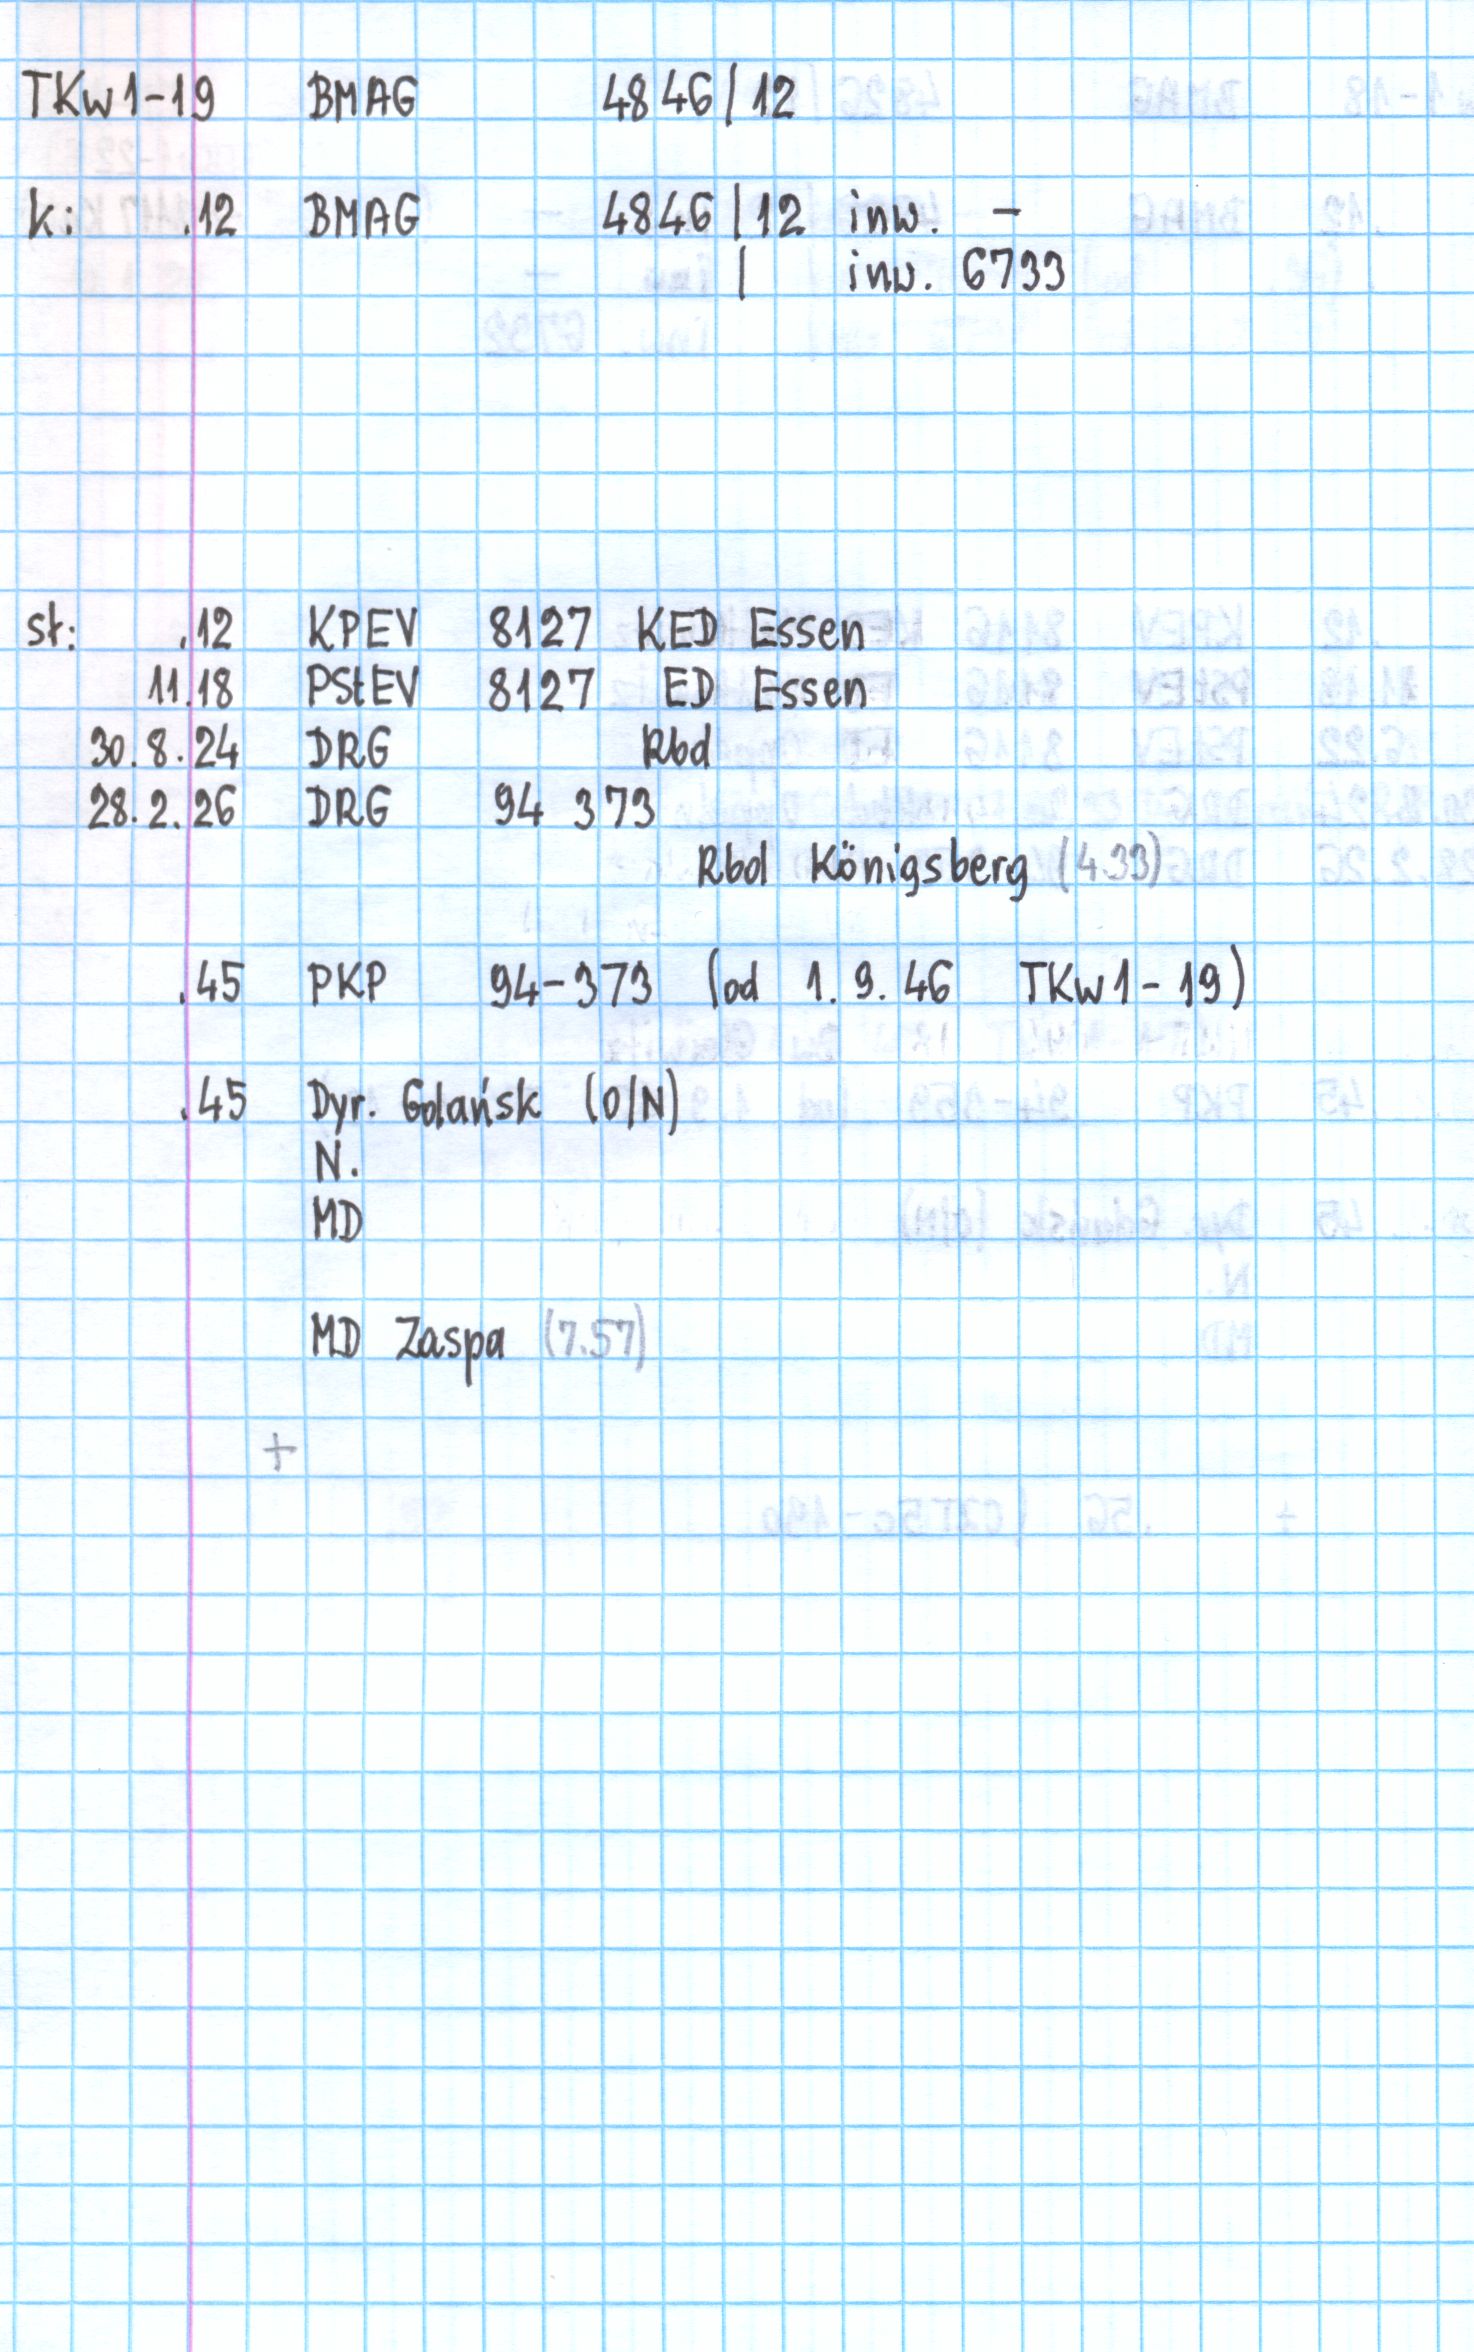 TKw1-19 BMAG 4846/12
k: .12 BMAG 4846/12 inw. -
/ inw. 6733
st: .12 KPEV 8127 KED Essen
11.18 PStEV 8127 ED Essen
30.8.24 DRG Rbd
28.2.26 DRG 94 373
Rbd Königsberg (4.33)
.45 PKP 94-373 (od 1.9.46 TKw1-19)
.45 Dyr. Gdańsk (O/N)
N.
MD
MD Zaspa (7.57)
+